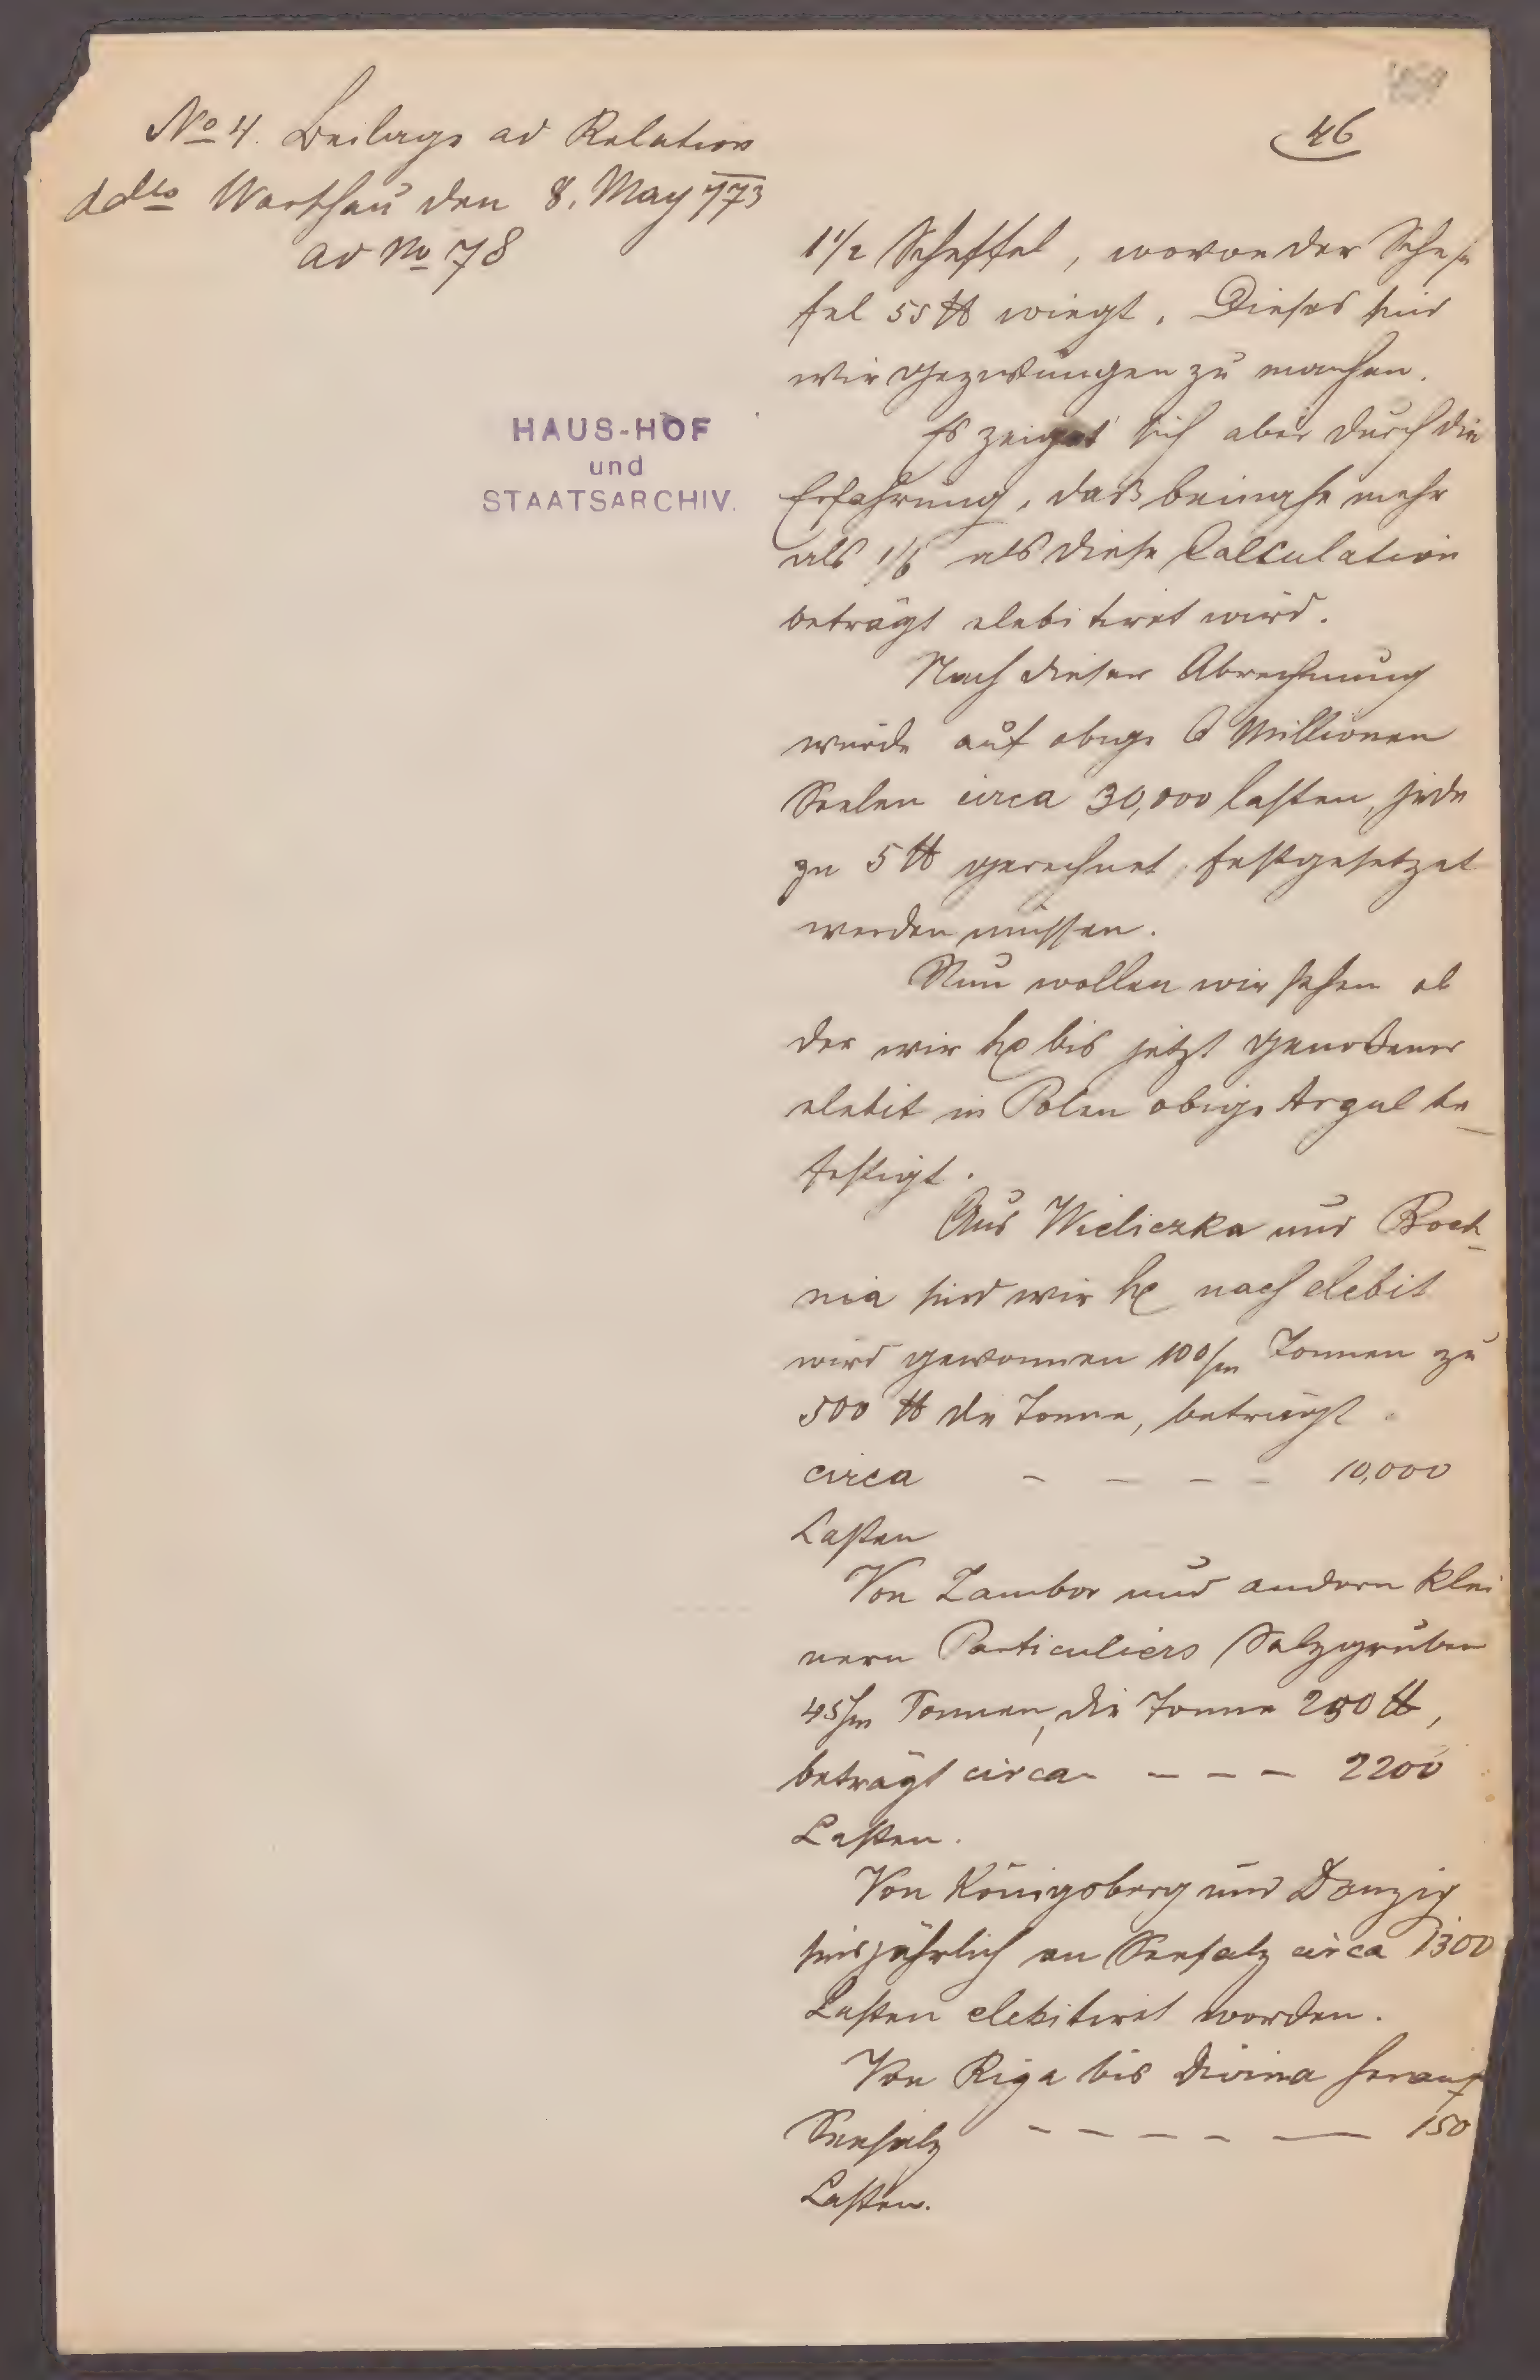 46
No 4. Beilage ad Relation
ddto Warschau den 8. May 773
ad No 78
HAUS-HOF
und
STAATSARCHIV.
1 1/2 Scheffel, wovon der Schef
fel 55 ℔ wiegt. Dieses sind
wir gezwungen zu machen.
Es zeiget sich aber durch die
Erfahrung, daß beinahe mehr
als 1/6 als diese Calculation
beträgt debitiret wird.
Nach dieser Abrechnung
würde auf obige 6 Millionen
Seelen circa 30,000 lasten, jede
zu 5 ℔ gerechnet, festgesetzet
werden müssen.
Nun wollen wir sehen ob
der wir bis jetzt genoßener
debit in Polen obige be_
festigt.
Aus Wieliczka und Boch_
nia sind wir nach debit
wird gewonnen 100/m Tonnen zu
500 ℔ die Tonne, beträgt
circa - - - - 10,000
Lasten
Von Zambor und andern klei
nern Particuliers Salzgruben
45/m Tonnen, die Tonne 250 ℔,
beträgt circa - - - - 2200
Lasten.
Von Königsberg und Danzig
sind jährlich an Seesalz circa 1300
Lasten debitiret worden.
Von Riga bis Divina herauf
Seesalz - - - - — 150
Lasten.